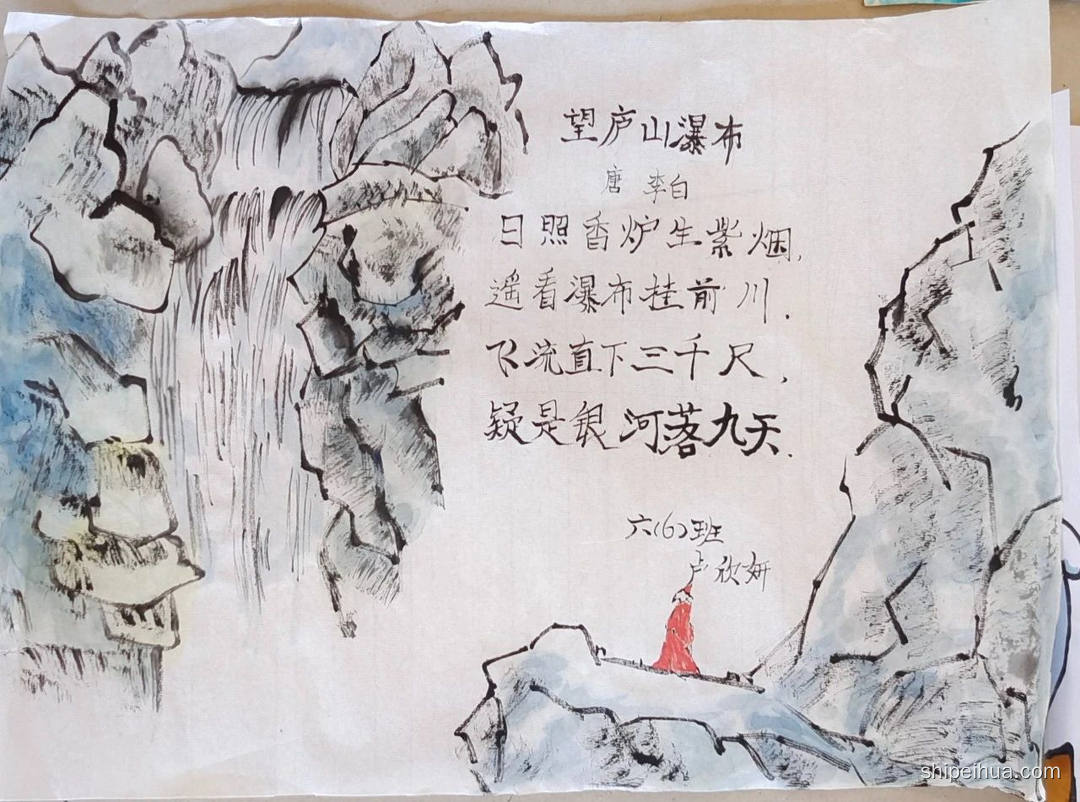 望庐山瀑布
唐 李白
日照香炉生紫烟,
遥看瀑布挂前川.
飞流直下三千尺,
疑是银河落九天.
六(6)班
卢欣妍
shipeihua.com